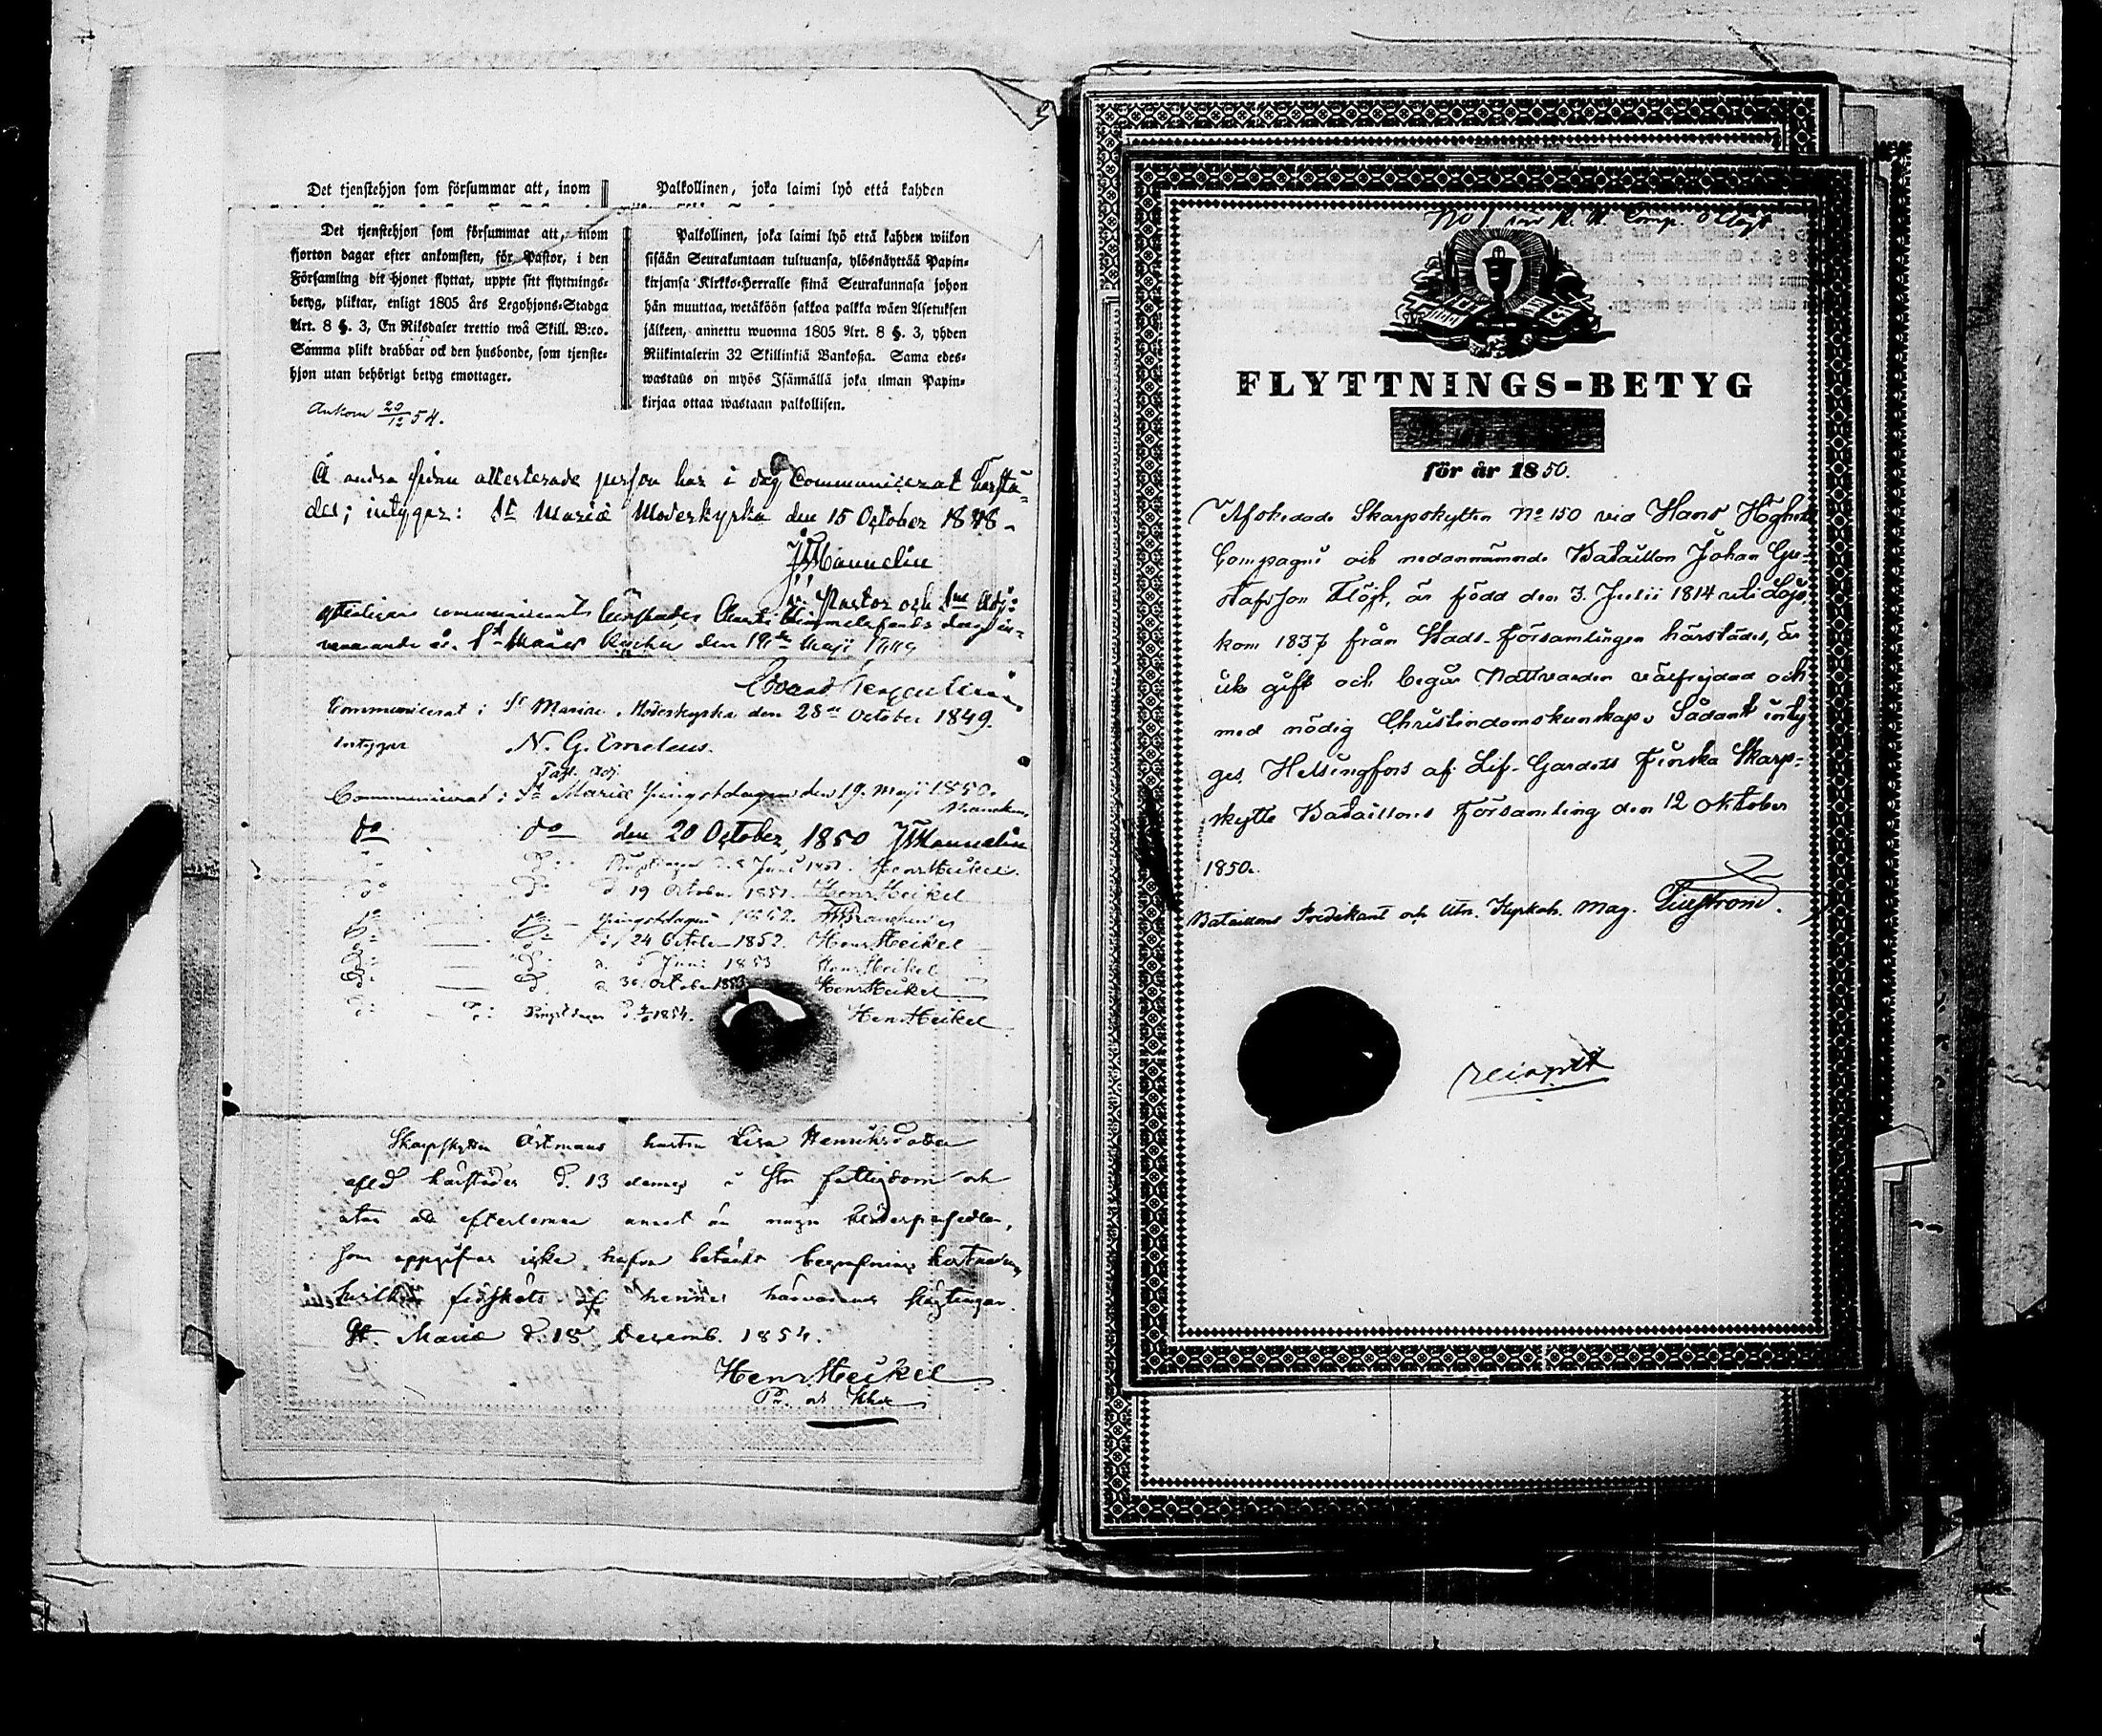 Det tjenstehjon som försummar att, inom
Palkollinen, joka laimi lyö että kahden
Det tjenstehjon som försummar att, inom
fjorton dagar efter ankomsten, för Pastor, i den
Församling dit hjonet flyttat, uppte sitt flyttnings-
betyg, pliktar, enligt 1805 års Legohjons-Stadga
Art. 8 §. 3, En Riksdaler trettio twå Skill. B:co.
Samma plikt drabbar ock den husbonde, som tjenste-
hjon utan behörigt betyg emottager.
Palkollinen, joka laimi lyö että kahden wiikon
sisään Seurakuntaan tultuansa, ylösnäyttää Papin-
kirjansa Kirkko-Herralle siinä Seurakunnasa johon
hän muuttaa, wetäköön sakkoa palkka wäen Asetuksen
jälkeen, annettu wuonna 1805 Art. 8 §. 3, yhden
Riikintalerin 32 Skillinkiä Bankoßa. Sama edes-
wastaus on myös Isännällä joka ilman Papin-
kirjaa ottaa wastaan palkollisen.
Ankom 20/12 54.
Å andra sidan attesterade person har i dag Communicerat härstä-
des; intygar: St Mariæ Moderkyrka den 15 October 1848
Mannelin
v. Pastor och Adj:
communicerat härstädes Christi Himmelsfärds dag in-
newarande år. St Maries Kyrka den 19de Maji 1849
Communicerat i St Mariæ Moderkyrka den 28de October 1849.
Intygar N. G. Emeleus.
Past. Adj.
Communicerat i St Mariæ Pingstdagen den 19. Maji 1850.
do do den 20 October, 1850 Mannelin
Do Do Pingstdagen d. 8 Juni 1851. Henr Heikel.
Do Do d. 19 October 1851. Henr Heikel
Do Do Pingstdagen 1852.
Do Do d. 24 October 1852. Henr Heikel
Do Do d. 5 Juni 1853 Henr Heikel
Do Do d. 30 October 1853 Henr Heikel
Do Do Pingstdagen d. 4/6 1854. Henr Heikel
Skarpskytten Östmans hustru Lisa Henriksdotter
afled härstädes d. 13 dennes i stor fattigdom och
utan att efterlemna annat än några klädespersedlar,
som uppgifvas icke hafva betäckt begrafnings kostnaden
hvilken af hennes härvarande slägtingar.
St. Mariæ d. 18 Decemb. 1854.
Henr Heikel
FLYTTNINGS-BETYG
för år 1850.
Afskedade Skarpskytten No 150 vid Hans Höghets
Compagni och nedannämnde Bataillon Johan Gu-
stafsson Flögt, är född den 3. Julii 1814 uti Lojo,
kom 1837 från Stads-Församlingen härstädes, är
icke gift och begår Nattvarden välfrejdad och
med nödig Christindomskunskap. Sådant inty
ges, Helsingfors af Lif-Gardets Finska Skarp-
skytte Bataillons Församling den 12 Oktober
1850.
Bataillons Predikant och Utn. Kyrkoh. Mag.